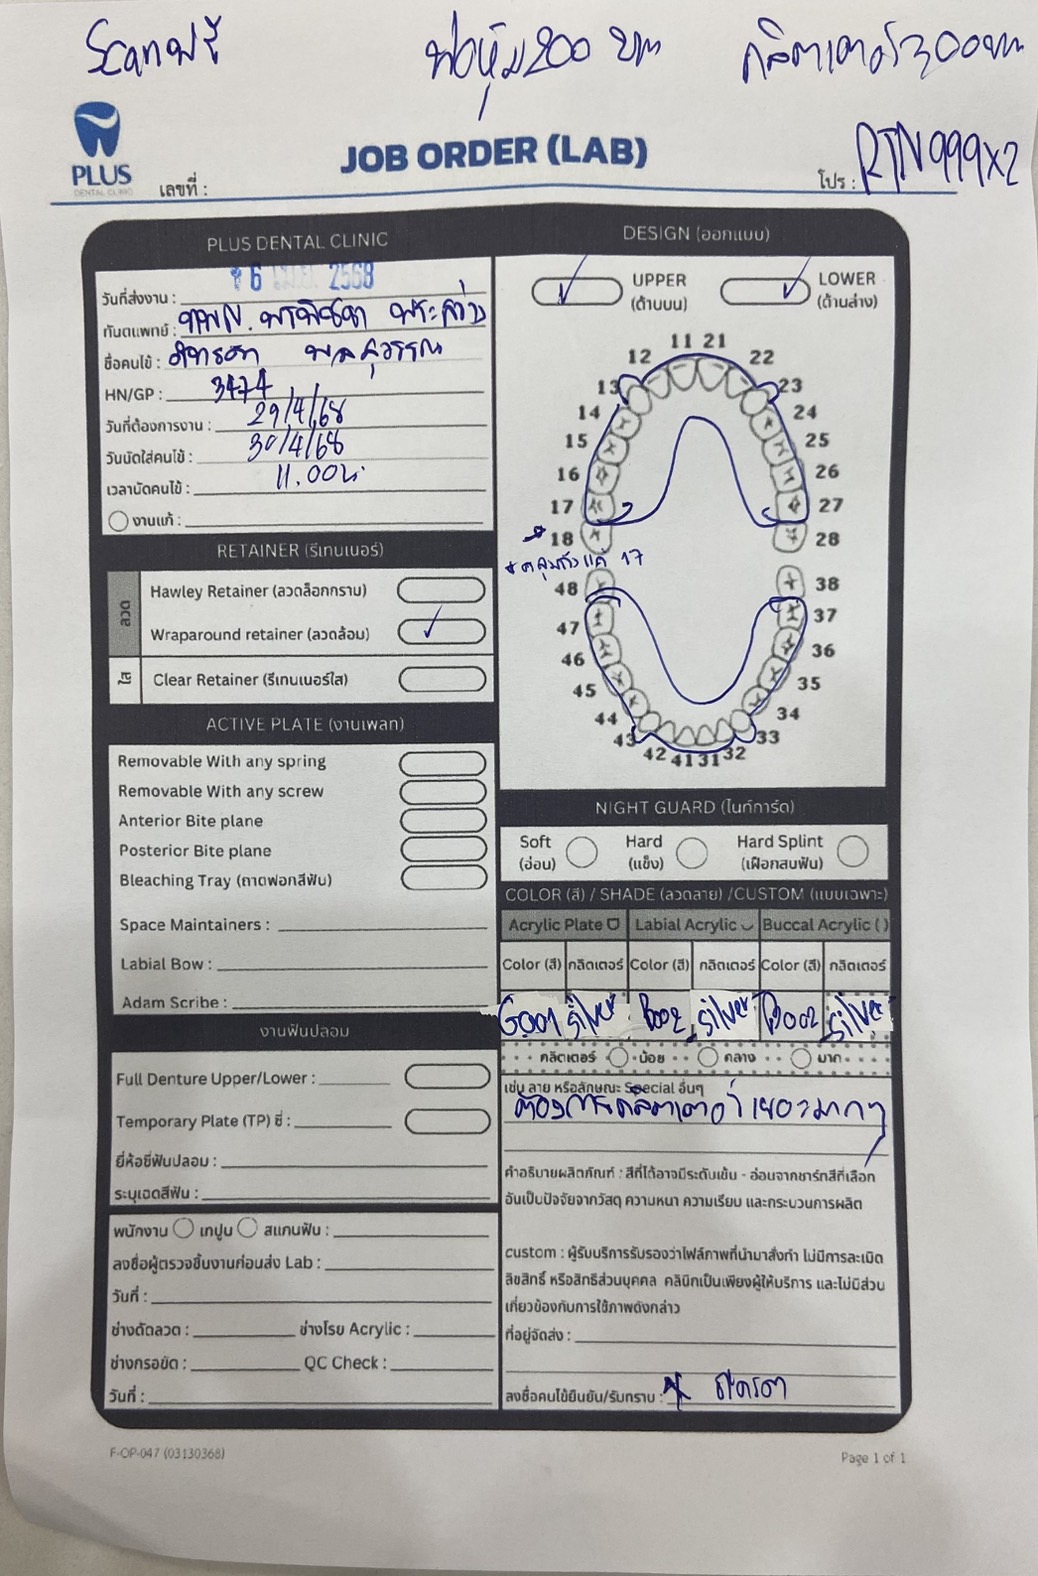 Scanฟรี
ฟอหุ้ม200 บาท
กลิตเตอร์300บาท
PLUS
DENTAL CLINIC
JOB ORDER (LAB)
เลขที่ :
โปร : RTN999x2
PLUS DENTAL CLINIC
วันที่ส่งงาน : 6 2568
ทันตแพทย์ :
ชื่อคนไข้ :
HN/GP : 3474
วันที่ต้องการงาน : 29/4/68
วันนัดใส่คนไข้ : 30/4/68
เวลานัดคนไข้ : 11.00น.
งานแก้ :
RETAINER (รีเทนเนอร์)
ลวด
Hawley Retainer (ลวดล็อกกราม)
Wraparound retainer (ลวดล้อม)
ใส
Clear Retainer (รีเทนเนอร์ใส)
ACTIVE PLATE (งานเพลท)
Removable With any spring
Removable With any screw
Anterior Bite plane
Posterior Bite plane
Bleaching Tray (ถาดฟอกสีฟัน)
Space Maintainers :
Labial Bow :
Adam Scribe :
งานฟันปลอม
Full Denture Upper/Lower :
Temporary Plate (TP) ซี่ :
ยี่ห้อซี่ฟันปลอม :
ระบุเฉดสีฟัน :
พนักงาน เทปูน สแกนฟัน :
ลงชื่อผู้ตรวจชิ้นงานก่อนส่ง Lab :
วันที่ :
ช่างดัดลวด : ช่างโรย Acrylic :
ช่างกรอขัด : QC Check :
วันที่ :
DESIGN (ออกแบบ)
UPPER (ด้านบน)
LOWER (ด้านล่าง)
11 21
12 22
13 23
14 24
15 25
16 26
17 27
18 28
* คลุมถึงแค่ 17
48 38
47 37
46 36
45 35
44 34
43 33
42 41 31 32
NIGHT GUARD (ไนท์การ์ด)
Soft (อ่อน)
Hard (แข็ง)
Hard Splint (เฝือกสบฟัน)
COLOR (สี) / SHADE (ลวดลาย) /CUSTOM (แบบเฉพาะ)
Acrylic Plate Labial Acrylic Buccal Acrylic ( )
Color (สี) กลิตเตอร์ Color (สี) กลิตเตอร์ Color (สี) กลิตเตอร์
G001 silver B002 silver B002 silver
กลิตเตอร์ น้อย กลาง มาก
เช่น ลาย หรือลักษณะ Special อื่นๆ
ต้องการกลิตเตอร์ เยอะมากๆ
คำอธิบายผลิตภัณฑ์ : สีที่ได้อาจมีระดับเข้ม - อ่อนจากชาร์ทสีที่เลือก
อันเป็นปัจจัยจากวัสดุ ความหนา ความเรียบ และกระบวนการผลิต
custom : ผู้รับบริการรับรองว่าไฟล์ภาพที่นำมาสั่งทำ ไม่มีการละเมิด
ลิขสิทธิ์ หรือสิทธิส่วนบุคคล คลินิกเป็นเพียงผู้ให้บริการ และไม่มีส่วน
เกี่ยวข้องกับการใช้ภาพดังกล่าว
ที่อยู่จัดส่ง :
ลงชื่อคนไข้ยืนยัน/รับทราบ :
F-OP-047 (03130368)
Page 1 of 1